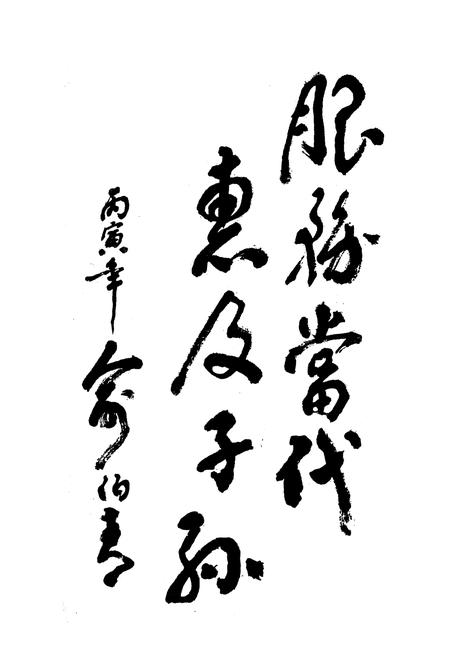 服務當代
惠及子孫
丙寅年
俞伯青